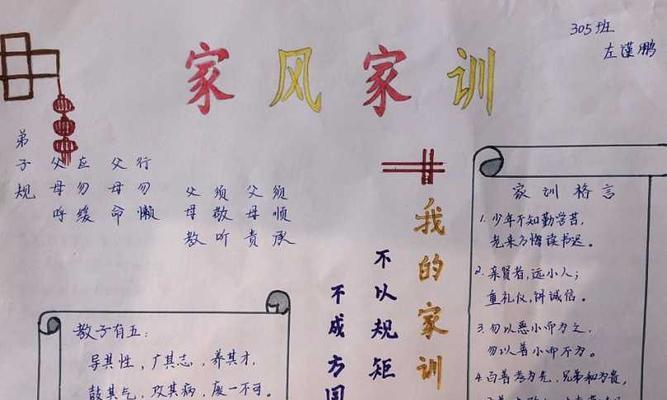 305班
左谨鹏
家风家训
弟子规
父母呼
应勿缓
父母命
行勿懒
父母教
须敬听
父母责
须顺承
我的家训
不以规矩
不成方圆
教子有五:
导其性,广其志,养其才,
鼓其气,攻其病,废一不可。
家训格言
1. 少年不知勤学苦,
老来方悔读书迟。
2. 亲贤者,远小人;
重礼仪,讲诚信。
3. 勿以恶小而为之,
勿以善小而不为。
4. 百善孝为先,兄弟和为贵,